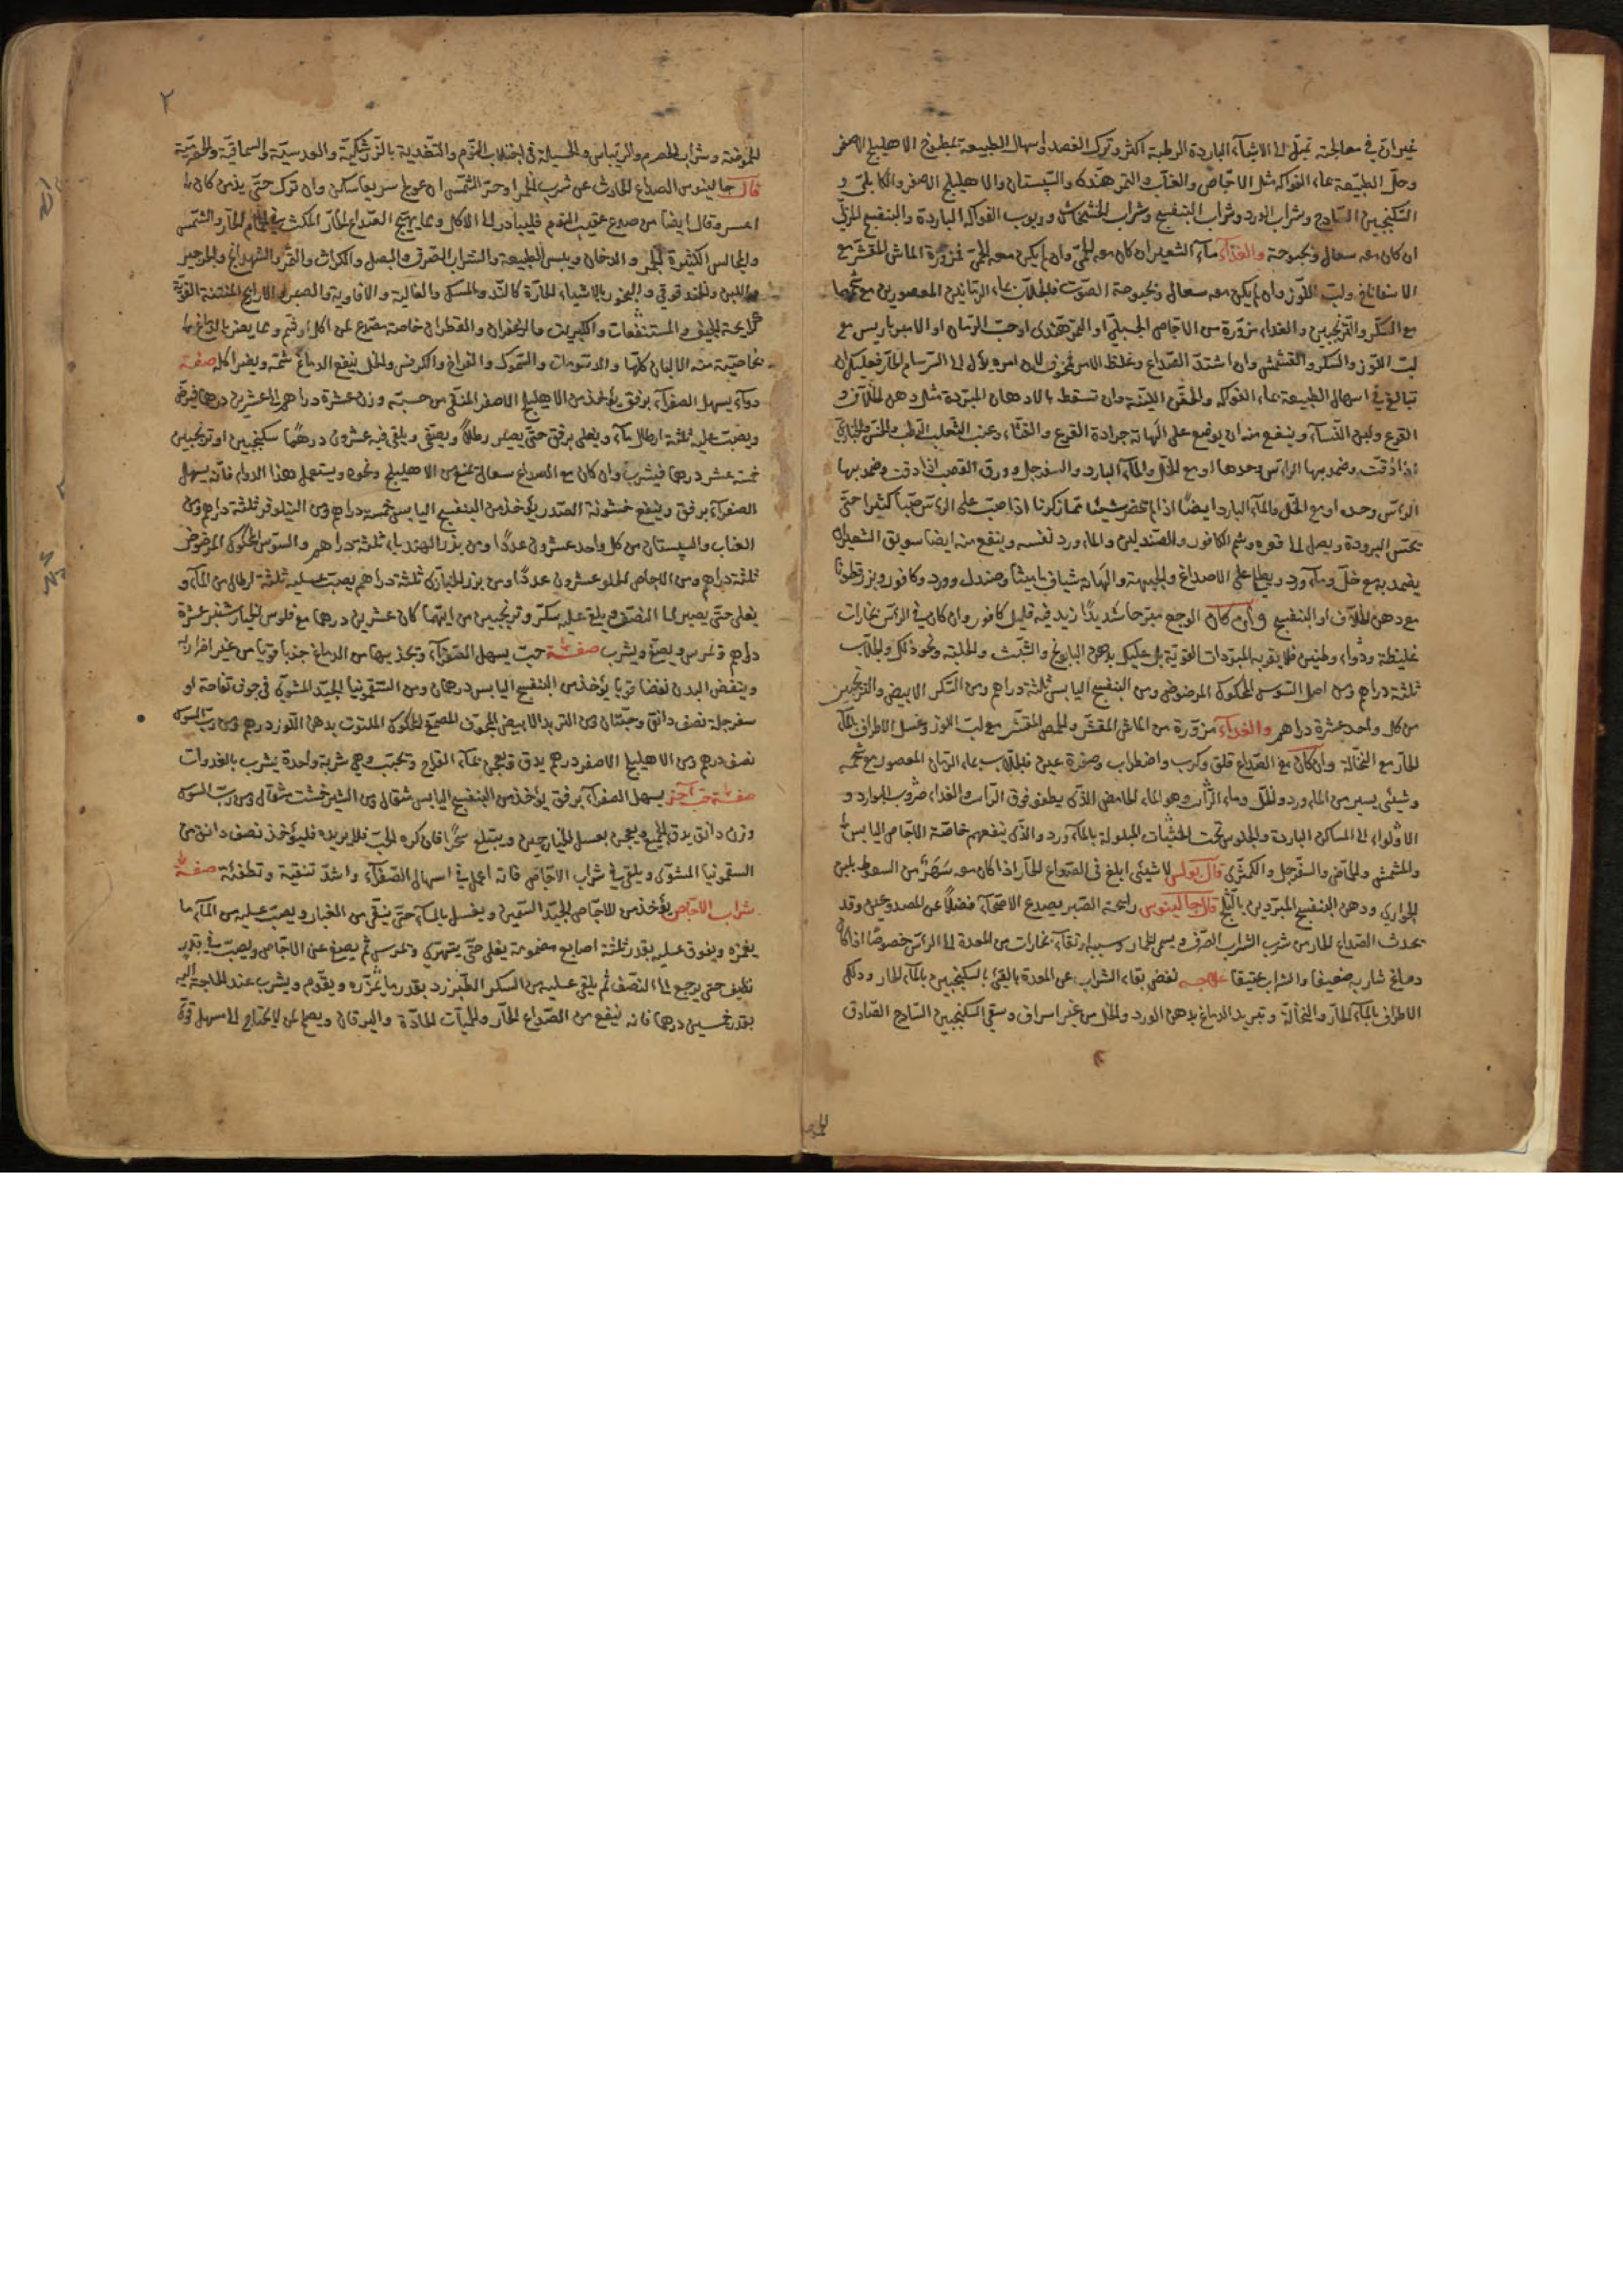 غير ان في معالجته تميل الى الاشياء الباردة الرطبة اكثر وترك الفصد واسهال الطبيعة بمطبوخ الاهليلج الاصفر
وحلّ الطبيعة بماء الفواكه مثل الاجّاص والعنّاب والتمر هندى والسپستان والاهليلج الاصفر والكابلىّ و
السكنجبين السّاذج وشراب الورد وشراب البنفسج وشراب الخشخاش وربوب الفواكه الباردة والبنفسج المربّى
ان كان معه سعال وبحبوحة والغذاء ماء الشعير ان كان معه الحمّى وان لم يكن معه الحمّى فمزوّرة الماش المقشّر مع
الاسفاناخ ولبّ اللّوز وان لم يكن معه سعال وبحبوحة الصّوت فالجلاب بماء الرمّانين المعصورين مع شحمها
مع السكّر والترنجبين والغداء مزوّرة من الاجّاص الجبلىّ او التمر هندى او حبّ الرمّان او الامبرباريس مع
لبّ اللّوز والسكر والقشمش وان اشتدّ الصّداع وغلظ الامر فخوف لان امره يؤل الى السّرسام الحارّ فعليك ان
تبالغ في اسهال الطبيعة بماء الفواكه والحقن الليّنة وان تسقط بالادهان المبرّدة مثل دهن الخلاف و
القرع ولبن النّساء وينفع منه ان يوضع على الهامة جرادة القرع والقثّاء وعنب الثّعلب الرّطب والخسّ والخبازى
اذا دقّت وضمد بها الرأس وحدها او مع الخلّ والماء البارد والسفرجل وورق القصب اذا دقت وضمد بها
الرأس وحده او مع الخلّ والماء البارد ايضًا اذا لم تحضر شيئًا ممّا ذكرنا اذا صبّ على الرأس صبّا كثيرا حتّى
تحسّ البرودة ويصل الى قعره وشم الكافور والصّندلين والماء ورد نفسه وينفع منه ايضا سويق الشعير ان
يضمد به مع خلّ وماء ورد ويطلى على الاصداغ والجبهة والهامة شياف ماميثا وصندل وورد وكافور وبزرقطونا
مع دهن الخلاف او البنفسج وان كان الوجع مبرّحا شديدًا زيد فيه قليل كافور وان كان في الرأس بخارات
غليظة ودواء وطنين فلا يقربه المبرّدات القويّة بل عليك بدهن البابونج والشّبث والحلبة ونحو ذلك والجلاب
ثلثة دراهم ومن اصل السّوس المحكوك المرضوض ومن البنفسج اليابس ثلثة دراهم ومن السّكر الابيض والترنجبين
من كل واحد عشرة دراهم والغداء مزوّرة من الماش المقشّر والحمص المقشّر مع لبّ اللوز وغسل الاطراف بالماء
الحارّ مع النخالة وان كان مع الصّداع قلق وكرب واضطراب وصفرة عين فالجلاب بماء الرمّان المعصور مع شحمه
وشئ يسير من الماء ورد والخلّ وماء الرّائب وهو الماء الحامض الذى يطفو فوق الرّائب والغداء ضروب البوارد و
الاولواء الى المساكن الباردة والجلوس تحت الخشبات المبلولة بالماء ورد والذى ينفعهم خاصّة الاجّاص اليابس
والمشمش والحمّاض والسفرجل والكمثرى قال بولس لا شئ ابلغ في الصّداع الحارّ اذا كان معه سَهَرٌ من السعوط بلبن
الجوارى ودهن البنفسج المبرّدين بالثلج قال جالينوس رايحة الصّبر يصدع الاصحّاء فضلاً عن المصدوعين وقد
يحدث الصّداع الحار من شرب الشراب الصّرف ويسمى الخمار وسببه ارتقاء بخارات من المعدة الى الرأس خصوصًا اذا كان
دماغ شاربه ضعيفا والشراب عتيقا علاجه نفض بقاء الشراب عن المعدة بالقئ بالسكنجبين بالماء الحار ودلك
الاطراف بالماء الحارّ والنخالة وتبريد الدماغ بدهن الورد والخل من غير اسراف وسقى السكنجبين السّاذج الصّادق
٢
الحموضة وشراب الحصرم والريباس والحيلة في اجتلاب النّوم والتّغذية بالزرشكيّة والعدسيّة والسماقيّة والحصرميّة
قال جالينوس الصداع الحادث عن شرب الخمر او حرّ الشّمس ان عولج سريعا سكن وان ترك حتى يزمن كان
اعسر وقال ايضا من صدع عقيب النوم فليبادر الى الاكل وممّا يهيّج الصّداع الحارّ المكث في الحمّام الحارّ والشّمس
والمجالس الكثيرة الجمر والدخان ويبس الطبيعة والشراب الصّرف والبصل والكراث والتمر والشهدانج والجرجير
واللبن والبخور بالاشياء الحارّة كالنّد والمسك والغالية والافاوية والصبر والارايح المنتنة القويّة
كرايحة الجيف والمستنقعات والكبريت والزعفران والقطران خاصة مصدع عن اكل او شم وممّا يضر بالدماغ
بخاصيّة منه الالبان كلّها والادسومات والسّموك والفراخ والكرفس والخل ينفع الدماغ شمّه ويضر اكله صفة
دواء يسهل الصفراء برفق يؤخذ من الاهليلج الاصفر المنقّى من حبّه وزن عشرة دراهم الى عشرين درهما فيرضّ
ويصبّ عليه ثلثة ارطال ماء ويغلى برفق حتى يصير رطلاً ويصفّى ويلقى فيه عشرون درهمًا سكنجبين او ترنجبين
خمسة عشر درهما فيشرب وان كان مع الصداع سعال يمنع من الاهليلج ونحوه ويستعمل هذا الدواء فانّه يسهل
الصفراء برفق وينفع خشونة الصّدر يؤخذ من البنفسج اليابس خمسة دراهم ومن النيلوفر ثلثة دراهم ومن
العناب والسپستان من كل واحد عشرون عددًا ومن بزر الهندباء ثلثة دراهم والسّوس المحكوك المرضوض
ثلثة دراهم ومن الاجاص الحلو عشرون عددًا ومن بزر الخبازى ثلثة دراهم يصبّ عليه ثلثة ارطال من الماء و
يغلى حتى يصير الى النصف ويلقى عليه سكّر وترنجبين من ايّهما كان عشرين درهما مع فلوس الخيار شنبر عشرة
دراهم وتمرس ويصفّى ويشرب صفة حبّ يسهل الصّفراء ويجذبها من الدماغ جذبا قويا من غير اضرار به
وينفض البدن نفضا قويا يؤخذ من البنفسج اليابس درهمان ومن السقمونيا الجيّد المشوى في جوف تفاحة او
سفرجلة نصف دانق وحبّتان ومن التربد الابيض المجوّف المصمّغ المحكوك الملتوت بدهن اللّوز درهم ومن ربّ السّوس
نصف درهم ومن الاهليلج الاصفر درهم يدق ويعجن بماء القراح ويحبّب وهي شربة واحدة يشرب بالغدوات
صفة حبّ آخر يسهل الصفراء برفق يؤخذ من البنفسج اليابس مثقال ومن الشيرخشت مثقال ومن ربّ السّوس
وزن دانق يدق الجميع ويعجن بعسل الخيارچنبر ويبتلع سحرًا فان كره الحبّ فلا يريده فليؤخذ نصف دانق من
السقمونيا المشوى ويلقى في شراب الاجّاص فانه اعمل في اسهال الصّفراء واشدّ تنقية وتطفئة صفة
شراب الاجّاص يؤخذ من الاجّاص الجيّد السّمين ويغسل بالماء حتى ينقّى من الغبار ويصبّ عليه من الماء ما
يغمره ويفوق عليه بقدر ثلثة اصابع مضمومة يغلى حتى يتهرّى وتمرس ثم يصفى عن الاجّاص ويصبّ في قدر
نظيف حتى يرجع الى النصف ثم يلقى عليه من السكر الطبرزد بقدر ما يمزّزه ويقوّم ويشرب عند الحاجة اليه
بقدر خمسين درهما فانه ينفع من الصّداع الحارّ والحميّات الحادّة واليرقان ويصلح لمن لا يحتاج الى اسهال قوىّ